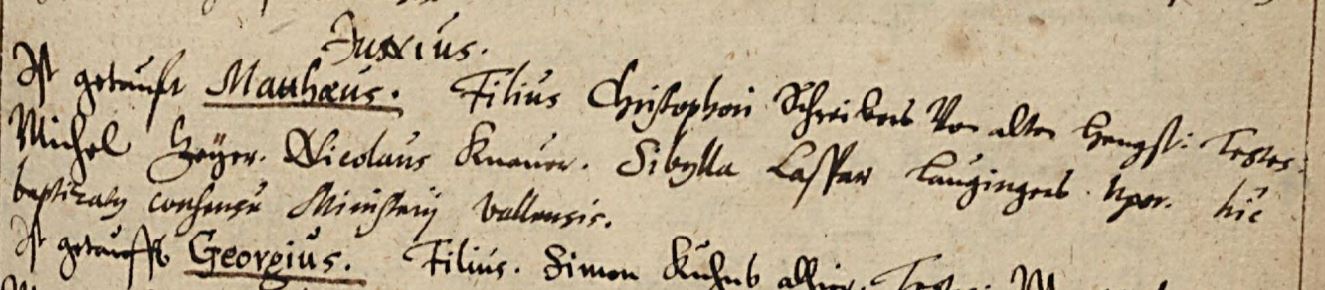 Junius.
Ist getaufft Matthæus. Filius Christophori Schreibers Von alten Hengst: Testes:
Michel Geÿer. Nicolaus Knauer. Sibylla Caspar Laugingers uxor. hic
baptizatus consensu Ministerij Vallensis.
Ist getaufft Georgius. Filius. Simon Kuhns alhier. Testes: